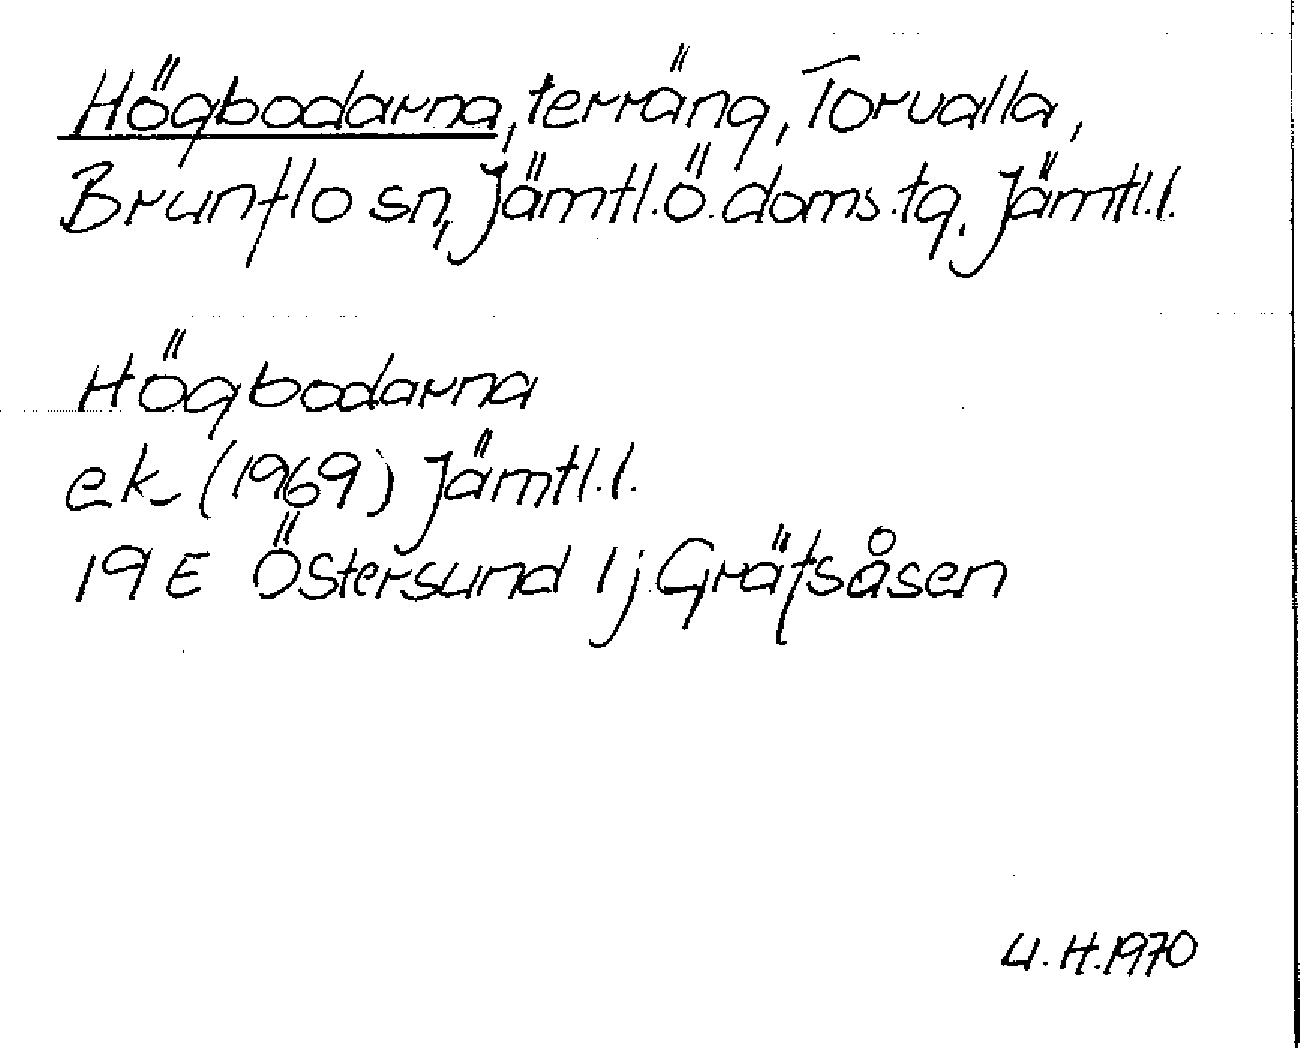 Högbodarna, terräng, Torvalla,
Brunflo sn, Jämtl.Ö.doms.tg. Jämtl.l.
Högbodarna
ek (1969) Jämtl.l.
19E Östersund 1j Gräfsåsen
U.H.1970